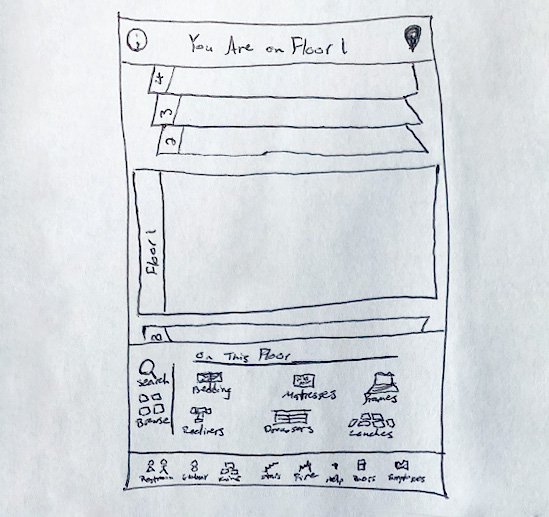 i You Are on Floor 1
4
3
2
Floor 1
B
On This Floor
Search
Browse
Bedding Matresses Frames
Recliners Drawsers Couches
Restroom Stairs Fire Help Doors